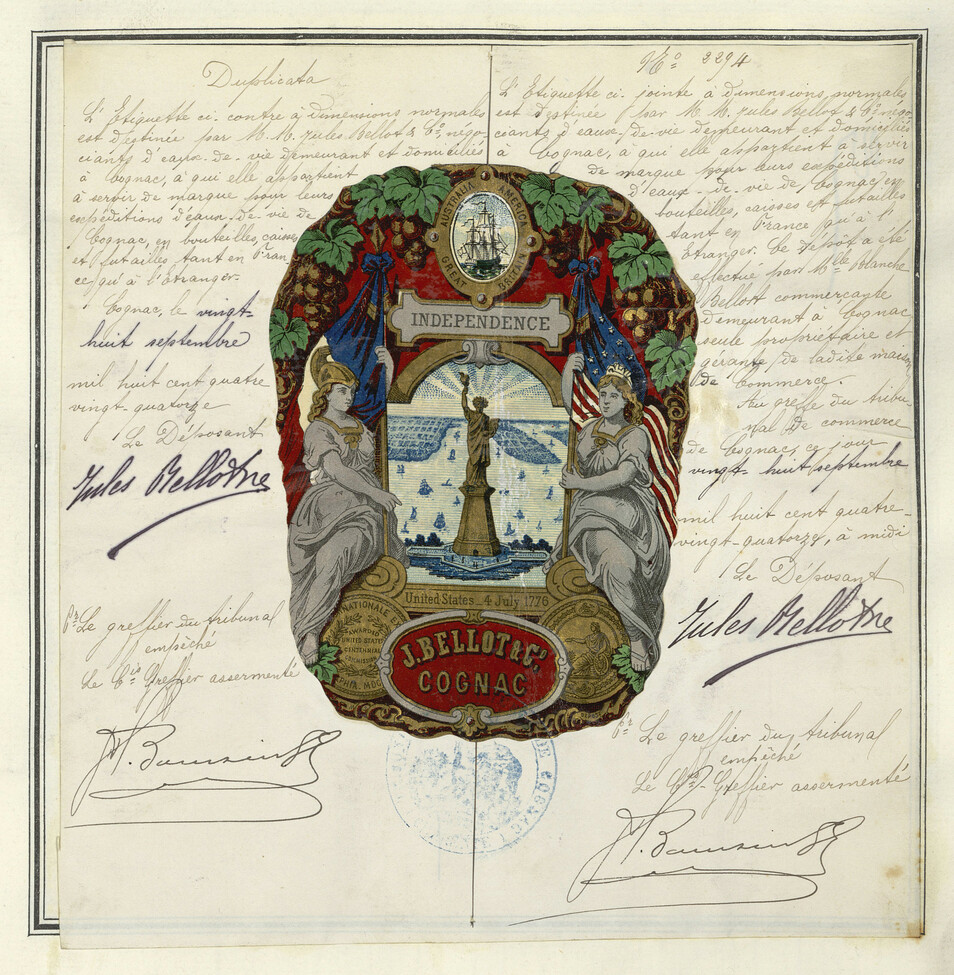 Duplicata
L'Etiquette ci-contre à dimensions normales
est destinée par M.M. Jules Bellot & Cº négo-
ciants d'eaux-de-vie demeurant et domiciliés
à Cognac, à qui elle appartient
à servir de marque pour leurs
expéditions d'eaux-de-vie de
Cognac, en bouteilles, caisses
et futailles, tant en Fran-
ce qu'à l'étranger.
Cognac, le vingt-
huit septembre
mil huit cent quatre
vingt-quatorze
Le Déposant
Jules Bellot
Pr. Le greffier du tribunal
empêché
Le Cis Greffier assermenté
Nº 2294
L'Etiquette ci-jointe à dimensions normales
est destinée par M.M. Jules Bellot & Cº négo-
ciants d'eaux-de-vie demeurant et domiciliés
à Cognac, à qui elle appartient à servir
de marque pour leurs expéditions
d'eaux-de-vie de Cognac, en
bouteilles, caisses et futailles
tant en France qu'à l'
Etranger. Le dépôt a été
effectué par Mlle Blanche
Bellot commerçante
demeurant à Cognac
seule propriétaire et
gérante de ladite maison
de Commerce.
Au greffe du tribu-
nal de commerce
de Cognac, ce jour
vingt-huit septembre
mil huit cent quatre-
vingt-quatorze, à midi
Le Déposant
Jules Bellot
Pr. Le greffier du tribunal
empêché
Le Cis Greffier assermenté
AUSTRALIA AMERICA
GREAT BRITAIN
INDEPENDENCE
United States 4 July 1776
NATIONALE EX
AWARDED
UNITED STATES
CENTENNIAL
COMMISSION
J. BELLOT & Cº
COGNAC
DE COGNAC